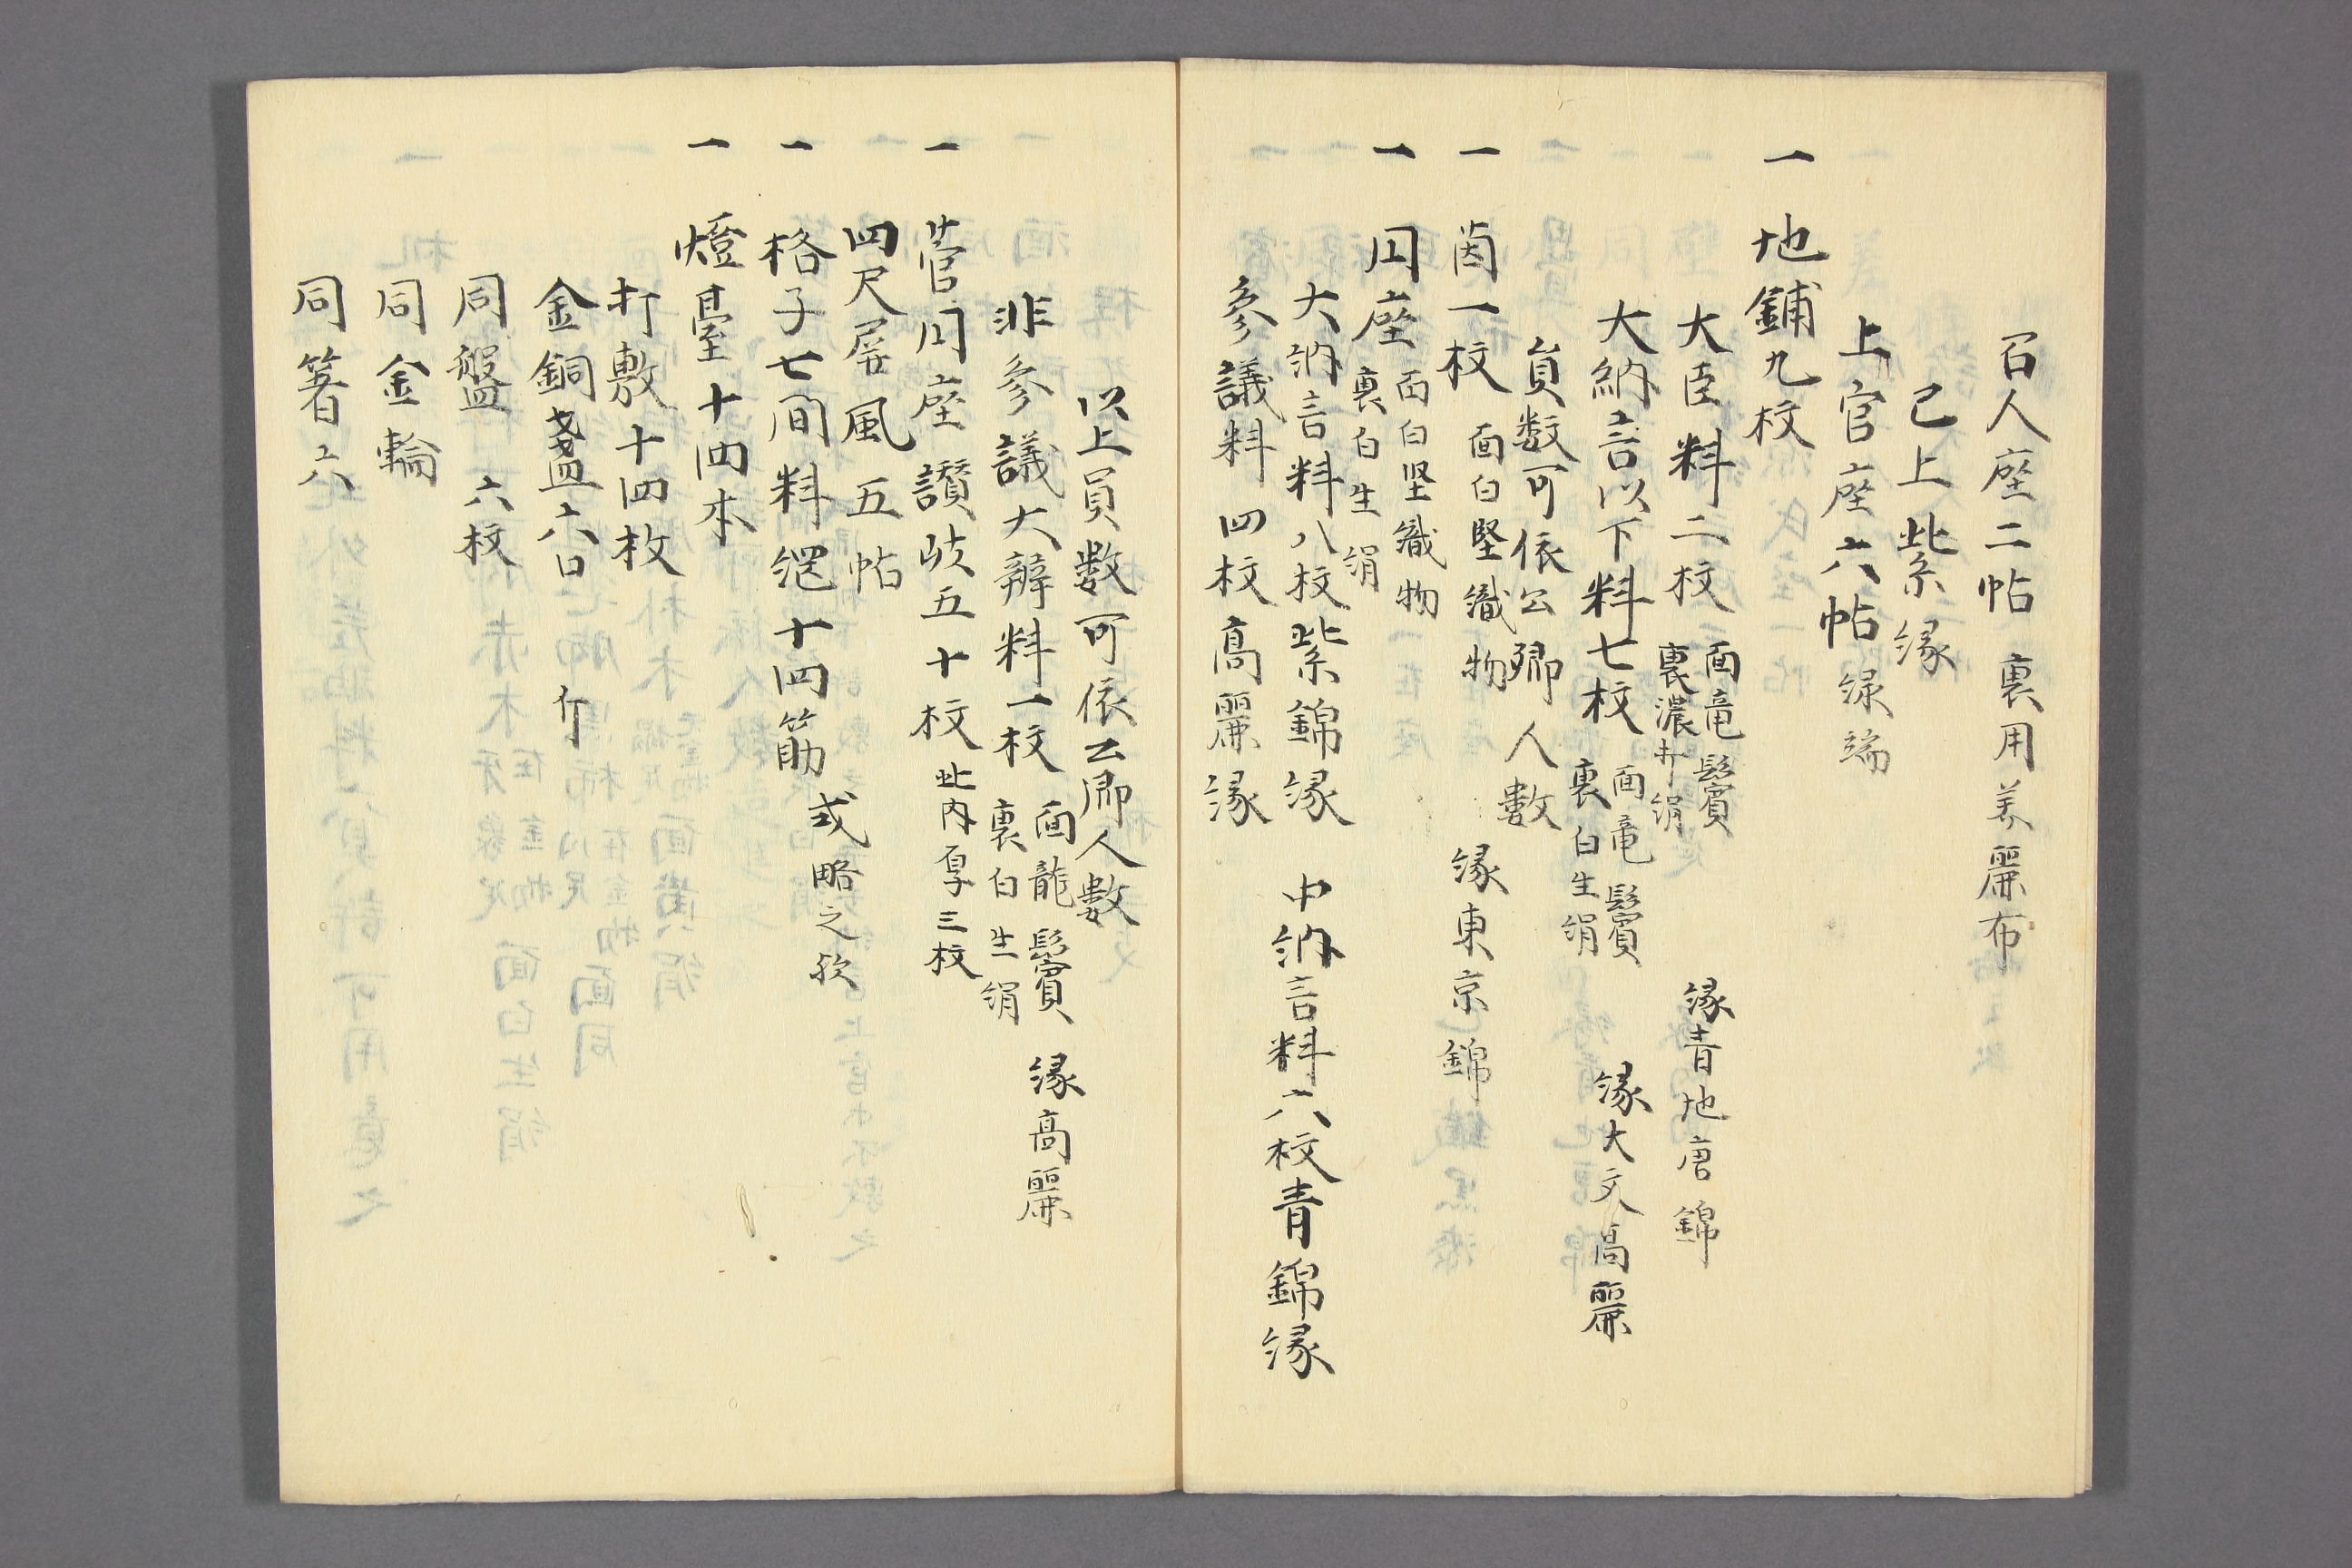 召人座二帖 裏用美麗布
已上紫縁
上官座六帖 緑端
一 地鋪九枚
大臣料二枚 面竜鬢 裏濃打絹 縁青地唐錦
大納言以下料七枚 面竜鬢 裏白生絹 縁大文高麗
員数可依公卿人数
一 茵一枚 面白堅織物 縁東京錦
一 円座 面白堅織物 裏白生絹
大納言料八枚紫錦縁 中納言料六枚青錦縁
参議料四枚高麗縁
以上員数可依公卿人数
非参議大辨料一枚 面龍鬢 裏白生絹 縁高麗
一 菅円座 讃岐五十枚 此内厚三枚
四尺屏風五帖
一 格子七間料綱十四筋 或略之歟
一 燈臺十四本
打敷十四枚
金銅盞六口 行
同盤 六枚
同金輪
同箸六